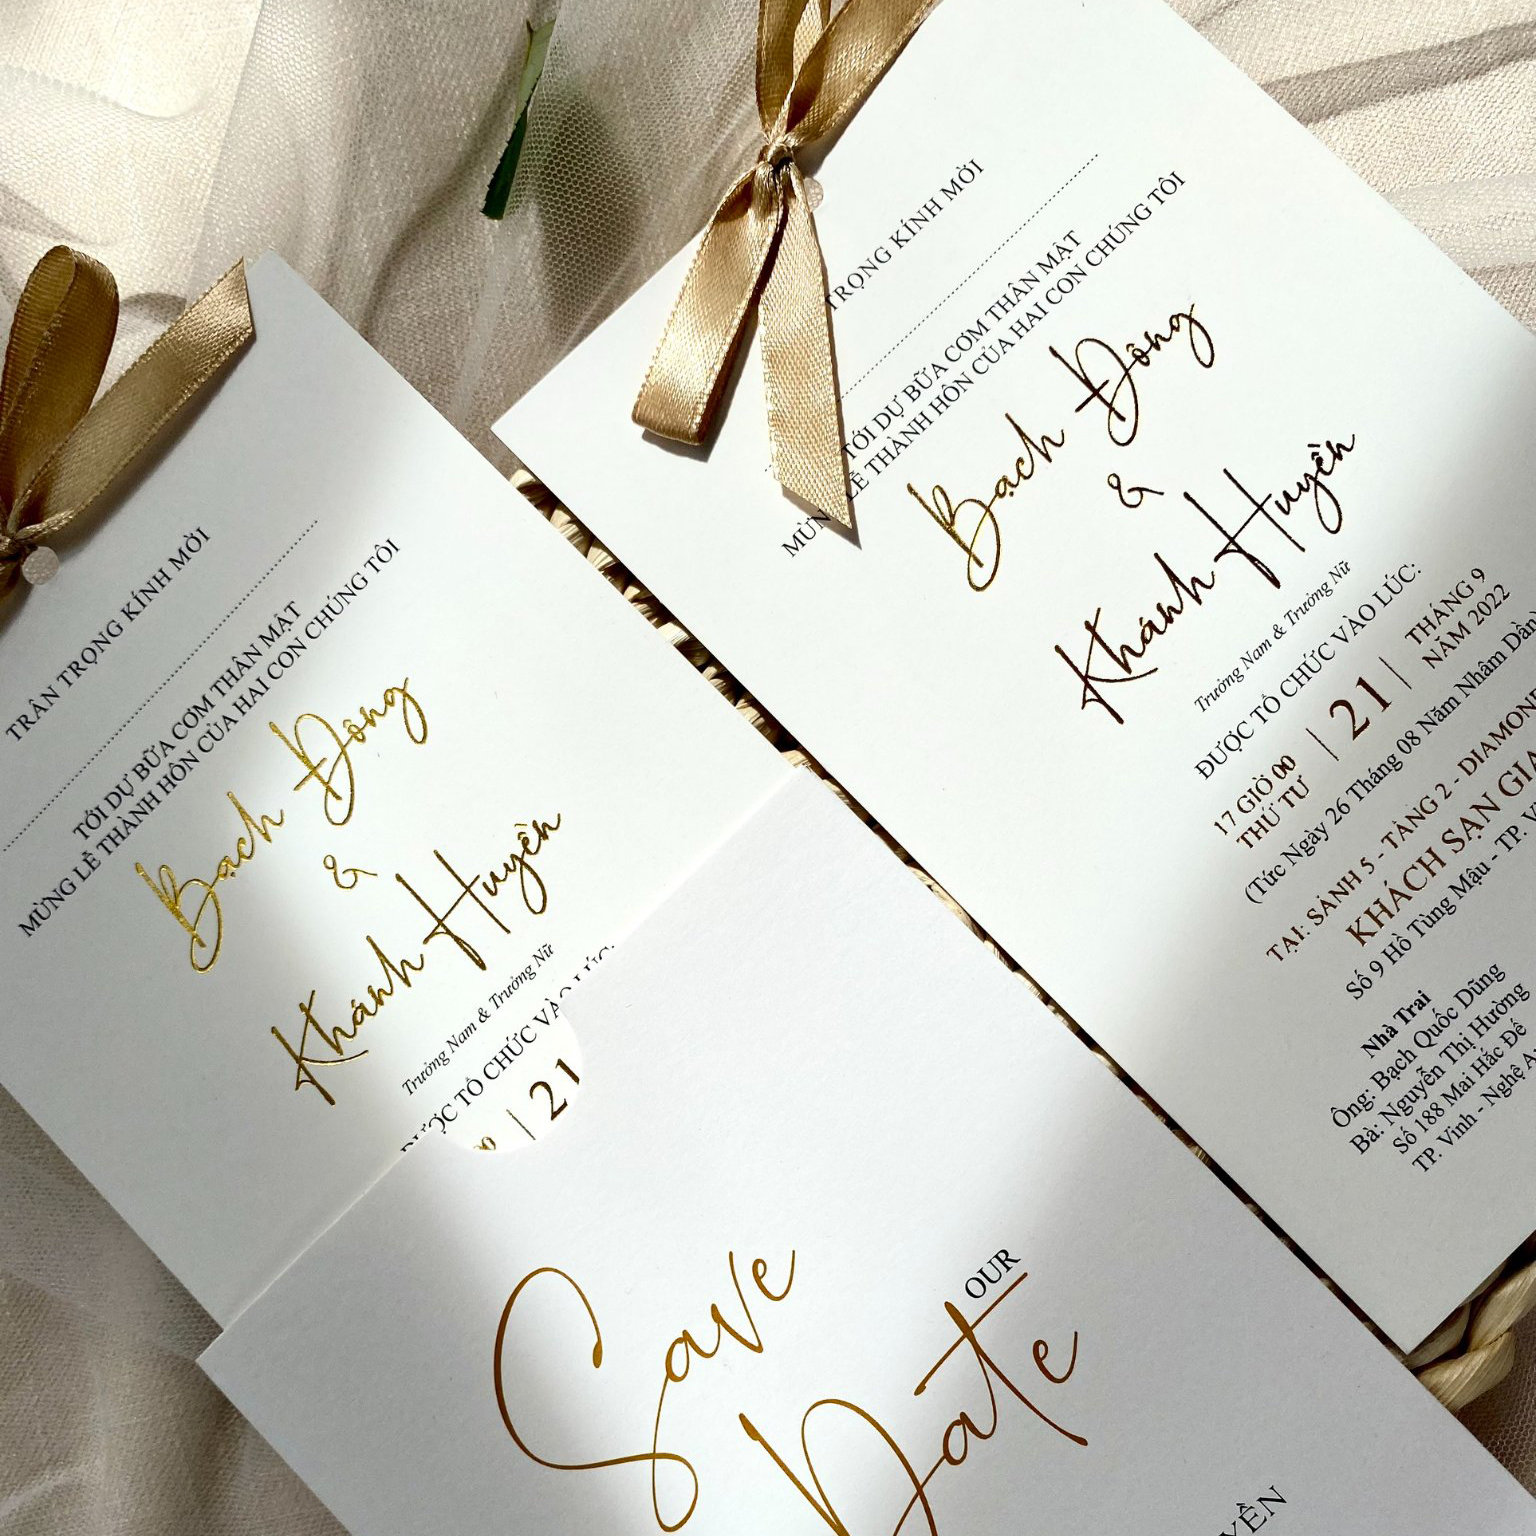 TRÂN TRỌNG KÍNH MỜI
TỚI DỰ BỮA CƠM THÂN MẬT
MỪNG LỄ THÀNH HÔN CỦA HAI CON CHÚNG TÔI
Bạch Đông
&
Khánh Huyền
Trưởng Nam & Trưởng Nữ
ĐƯỢC TỔ CHỨC VÀO LÚC:
00 | 21
TRỌNG KÍNH MỜI
TỚI DỰ BỮA CƠM THÂN MẬT
MỪN LỄ THÀNH HÔN CỦA HAI CON CHÚNG TÔI
Bạch Đông
&
Khánh Huyền
Trưởng Nam & Trưởng Nữ
ĐƯỢC TỔ CHỨC VÀO LÚC:
17 GIỜ 00 | 21 | THÁNG 9
THỨ TƯ NĂM 2022
(Tức Ngày 26 Tháng 08 Năm Nhâm Dần)
TẠI: SẢNH 5 - TẦNG 2 - DIAMON
KHÁCH SẠN GIA
Số 9 Hồ Tùng Mậu - TP. V
Nhà Trai
Ông: Bạch Quốc Dũng
Bà: Nguyễn Thị Hường
Số 188 Mai Hắc Đế
TP. Vinh - Nghệ A
Save
OUR
Date
YỀN